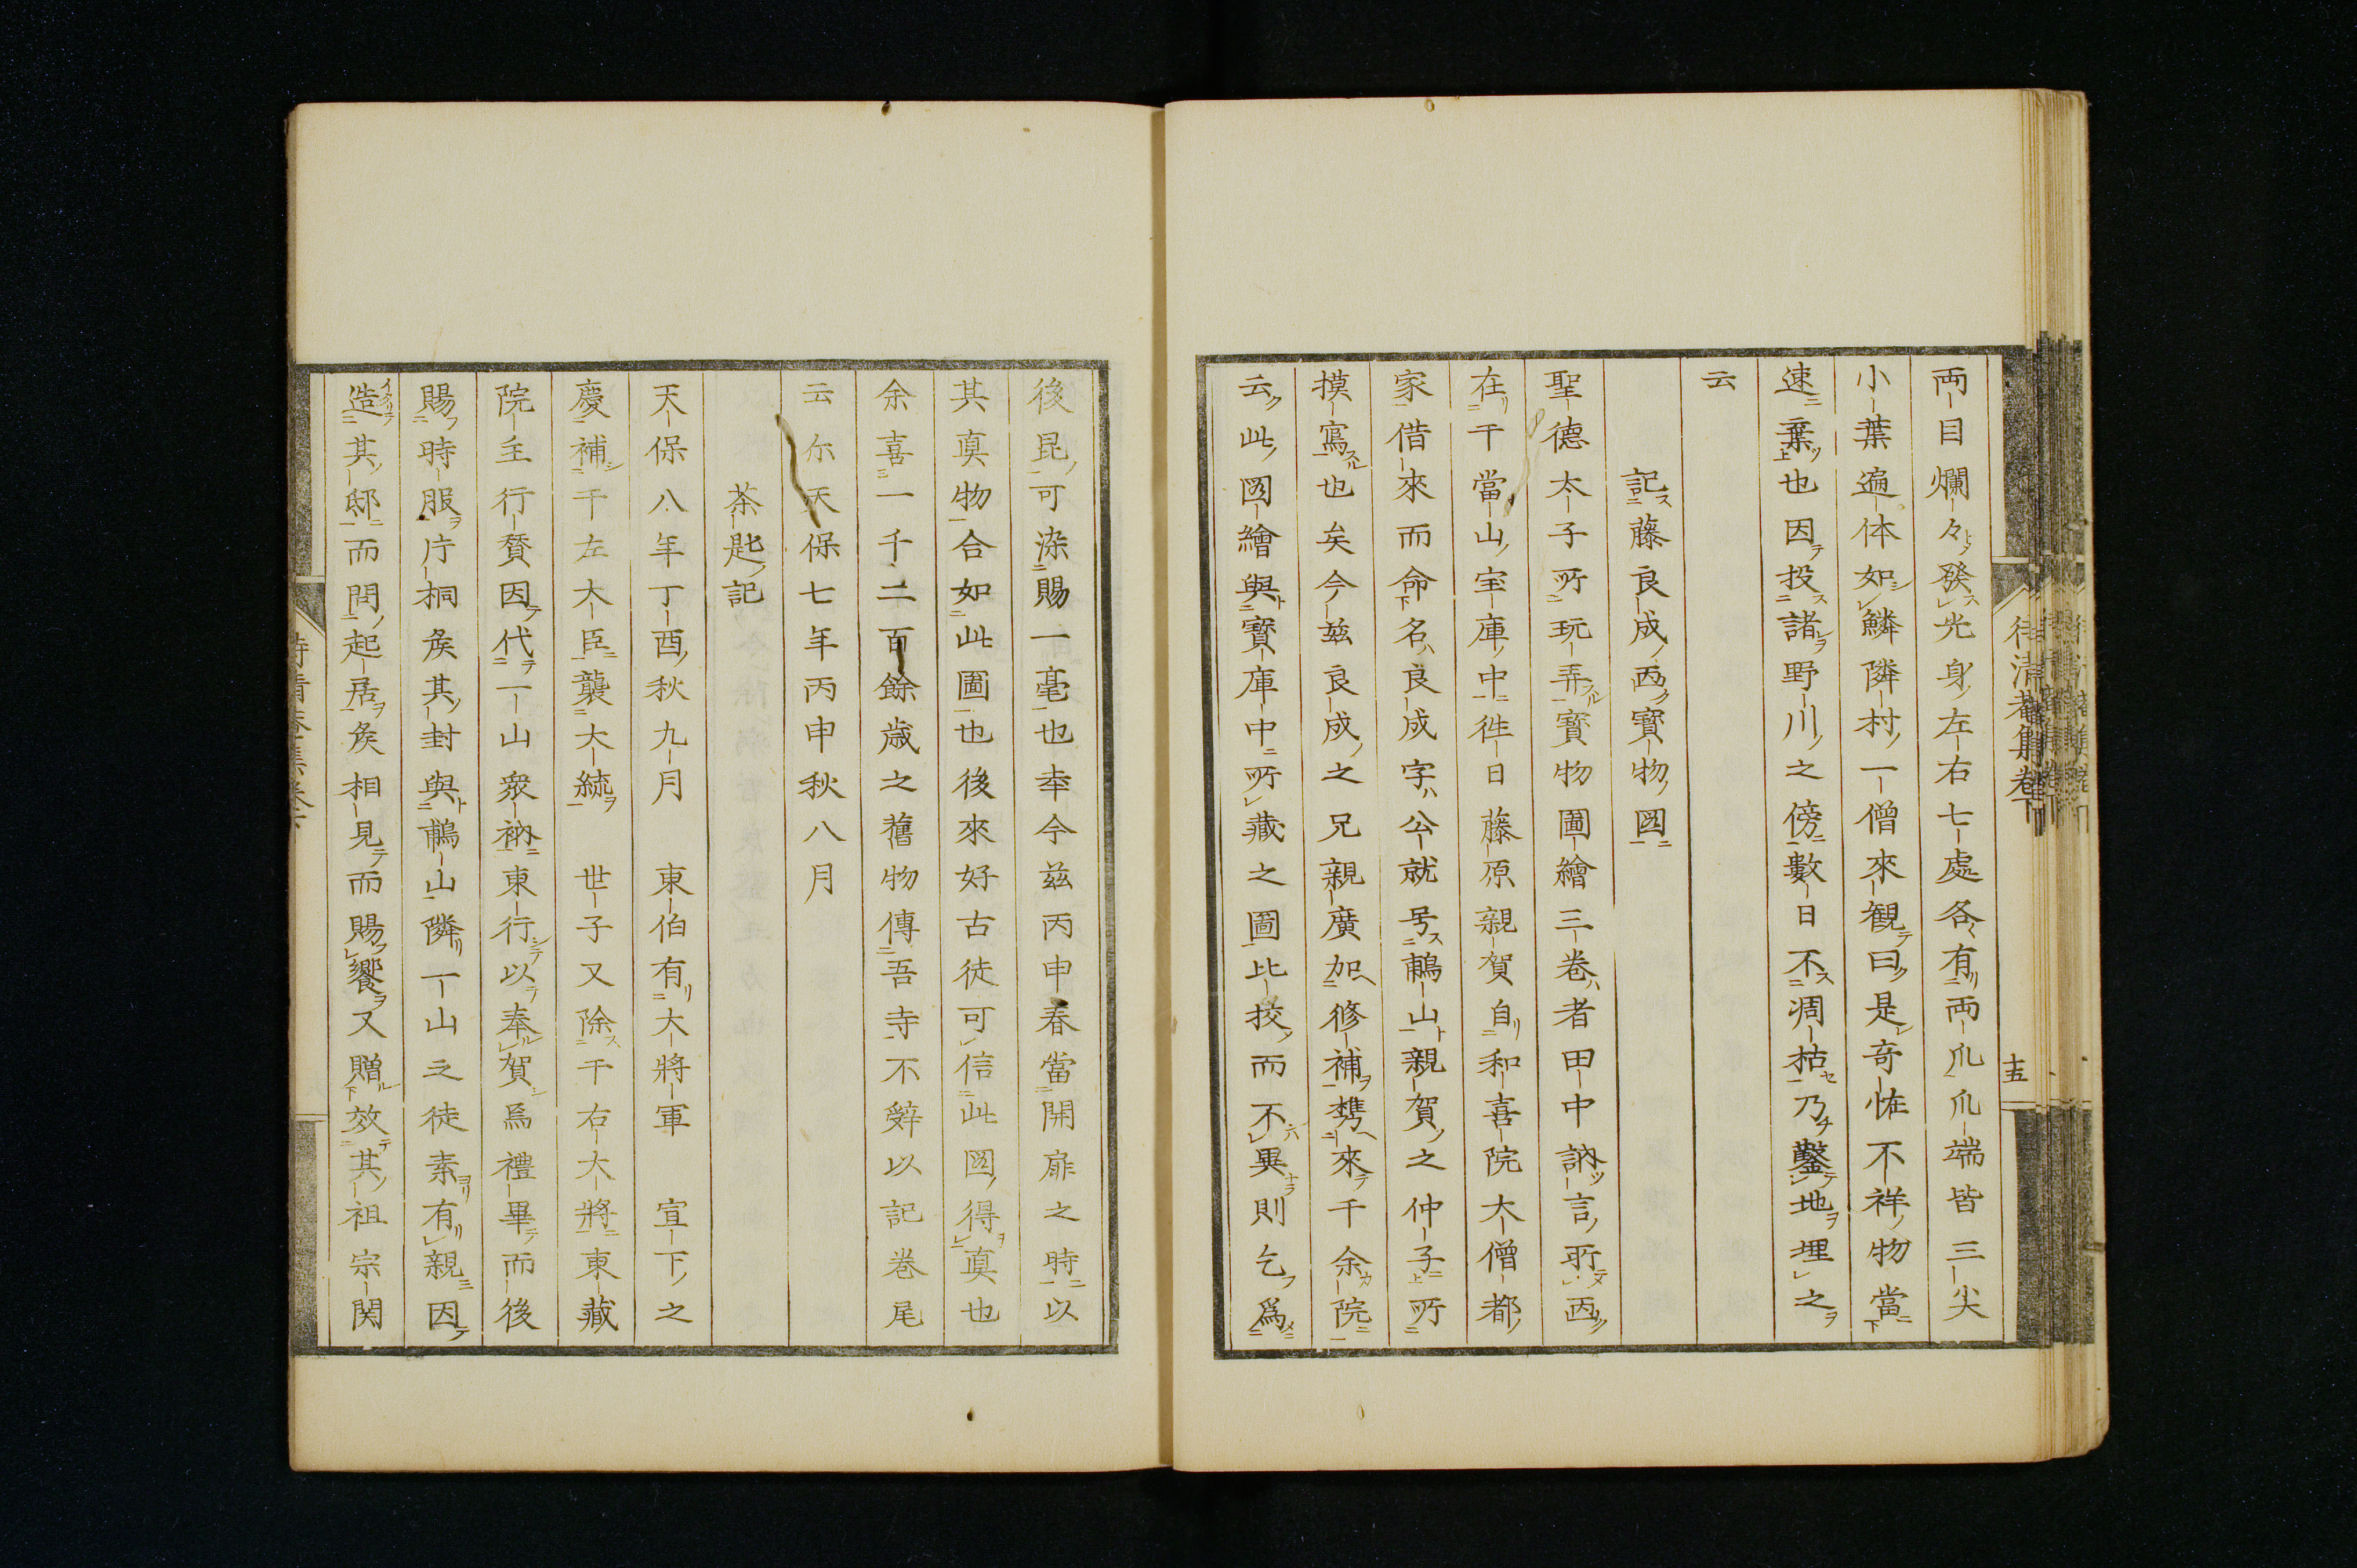 両目爛々發光身左右七處各有両爪爪端皆三尖
小葉遍体如鱗隣村一僧來観曰是竒恠不祥物當
速棄也因投諸野川之傍數日不凋枯乃鑿地埋之
云
記藤良成画寳物図
聖德太子所玩弄寳物圖繪三卷者田中訥言所画
在于當山宝庫中徃日藤原親賀自和喜院大僧都
家借來而命名良成字公就号鶣山親賀之仲子所
摸寫也矣今兹良成之兄親廣加修補携來于余院
云此図繪與寳庫中所藏之圖比挍而不異則乞爲
後昆可染賜一毫也幸今兹丙申春當開扉之時以
其眞物合如此圖也後來好古徒可信此図得眞也
余喜一千二百餘歳之舊物傳吾寺不辤以記卷尾
云尓天保七年丙申秋八月
茶匙記
天保八年丁酉秋九月 東伯有大將軍 宣下之
慶補于左大臣襲大統 世子又除于右大將東藏
院主行賛因代一山衆衲東行以奉賀爲禮畢而後
賜時服庁桐矦其封與鶣山隣一山之徒素有親因
造其邸而問起居矦相見而賜饗又贈效其祖宗関
待清菴集卷下
十五